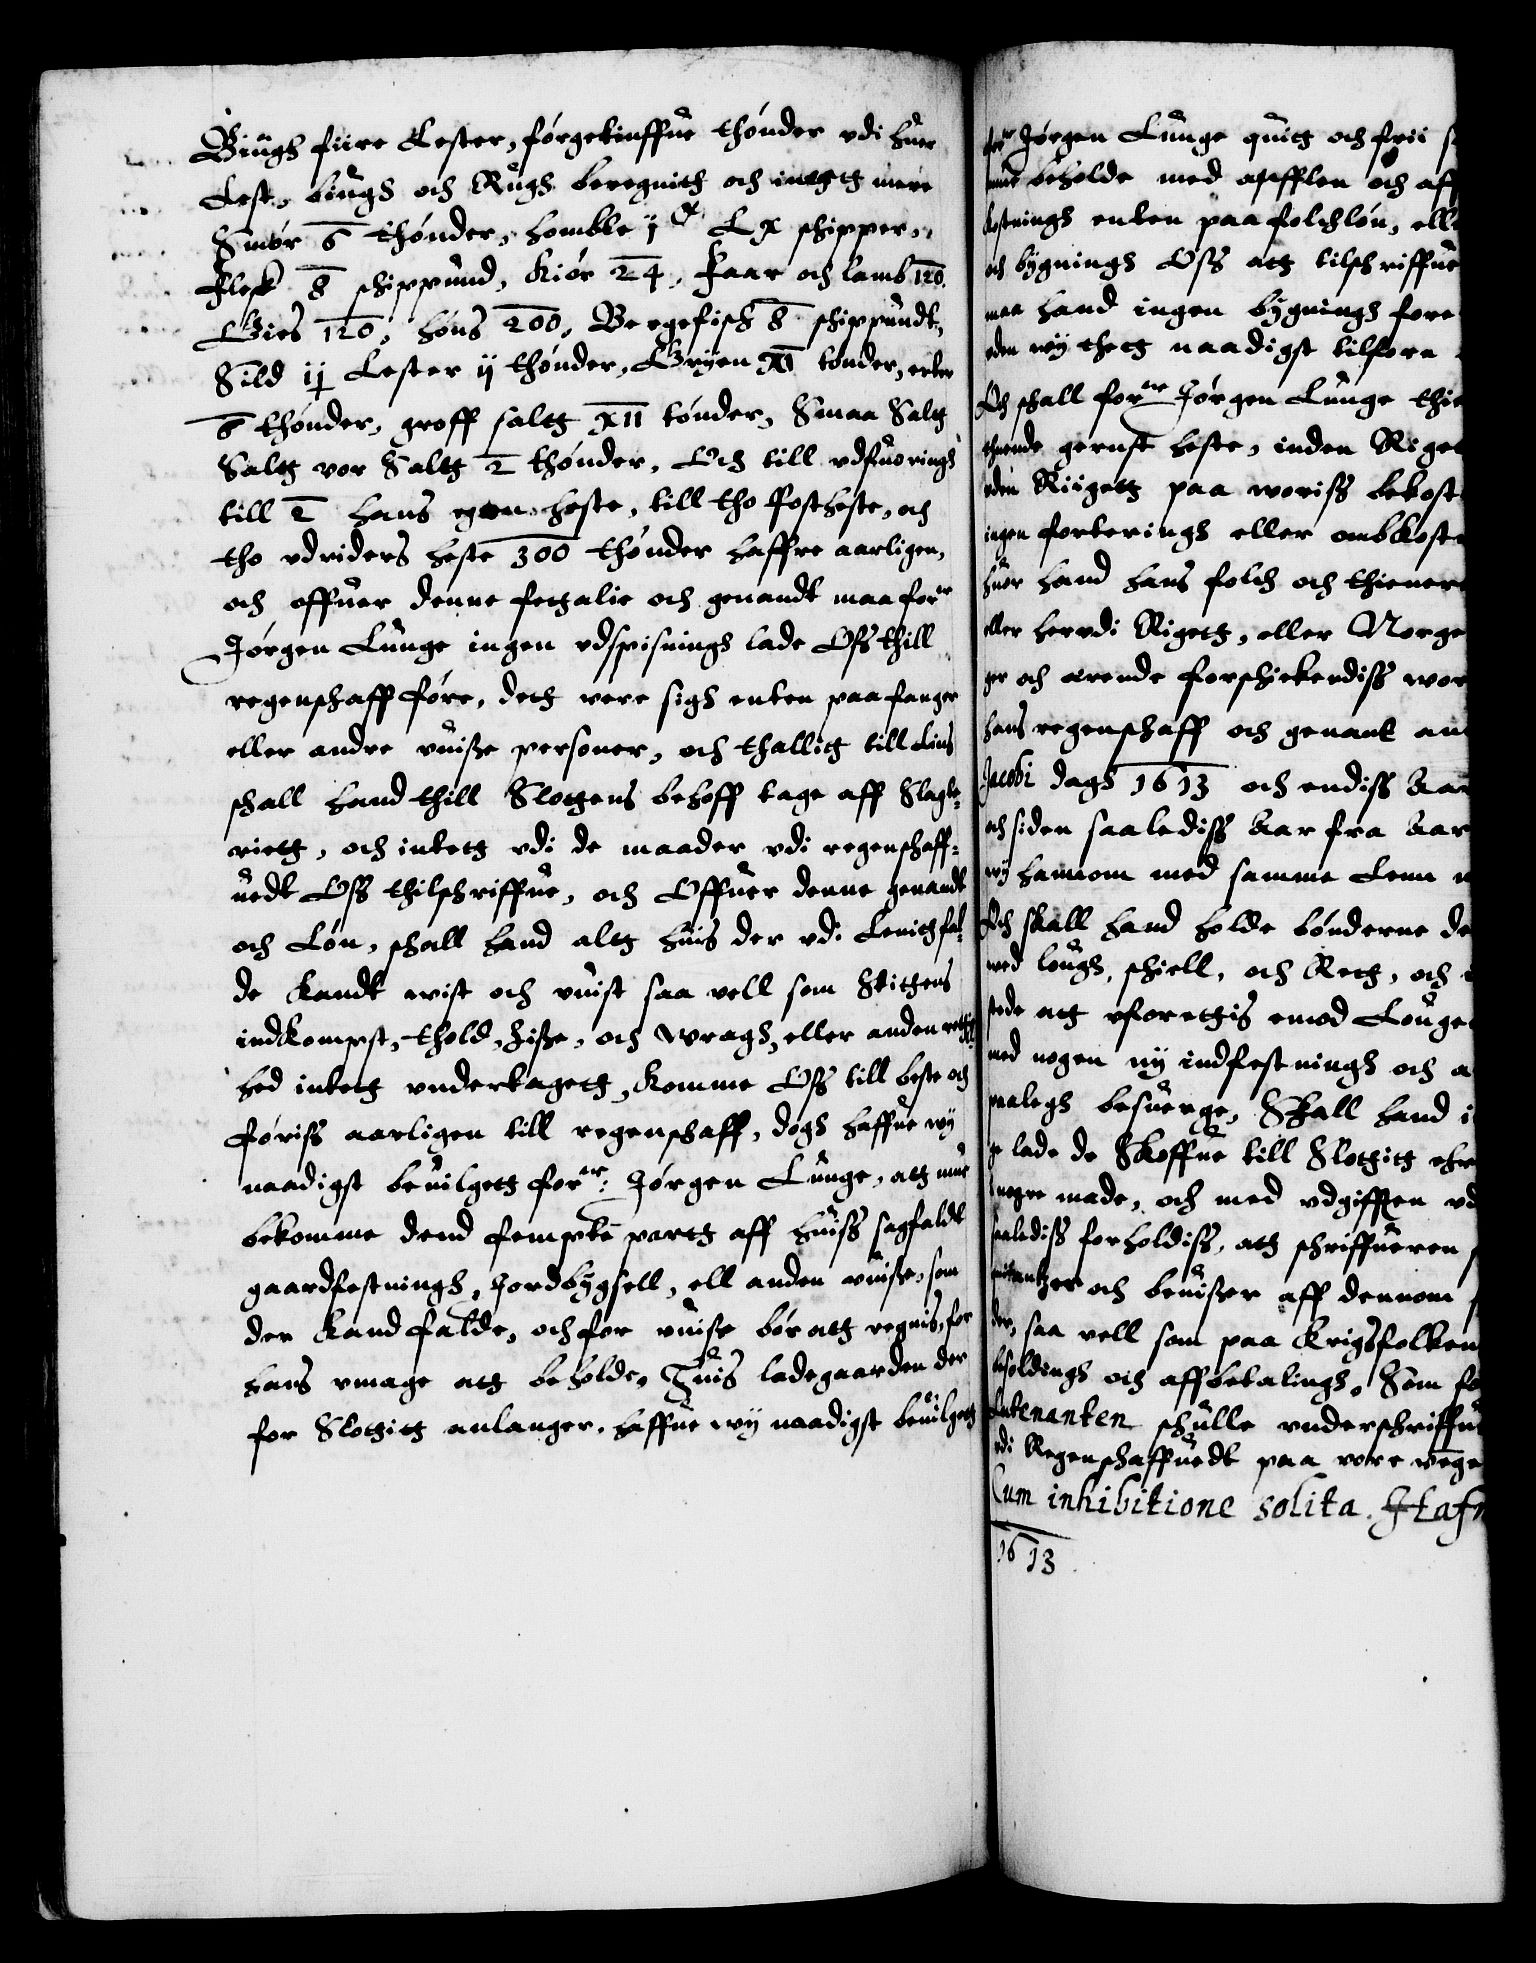 Biugh fiire Lester, førgetiuffue thønder vdi huer
Lest, biugh och Rugh beregnith och intgtt mere
Smør 6 thønder, homble j C L X schipper,
Flesk 8 schippund, Kiør 24, Faar och lamb 120.
Gies 120, høns 200, Bergefisch 8 schippundt,
Sild ij Lester ij thønder, Gryen XI tønder, erter
6 thønder, groff saltt XII tønder, Smaa Saltt
Saltt vor Saltt 2 thønder, Och till vdfuoringh
till 2 hans egen heste, till tho Postheste, och
tho vdriders heste 300 thønder haffre aarligen,
och offuer denne fetalie och genandt maa forr
Jørgen Lunge ingen vdspisningh lade Oss thill
regenschaff føre, dett vere sigh enten paa fanger
eller andre uuisse personer, och thallitt till Lius
schall hand thill Slottens behoff tage aff Slagte-
riett, och intett vdi de maader vdi regenschaff-
uedt Oss thilschriffue, och Offuer denne genandt
och Løn, schall hand altt huis der vdi Lenith fal-
de Kandt wist och uuist saa vell som Stittens
indkompst, thold, zisse, och wragh, eller anden rettig
hed intett undertagett, Komme Oss till beste och
føriss aarligen till regenschaff, dogh haffue wy
naadigst beuilgett forr: Jørgen Lunge, att mue
bekomme dend fempte partt aff huiss sagfaldt
gaardfestningh, Jordbygsell, ell anden uuisse, som
der Kand falde, och for uuisse bør att regnis, for
hans vmage att beholde, Huis ladegaarden der
for Slottitt anlanger, haffue wy naadigst beuilgett
forr Jørgen Lunge quitt och frii
beholde med affuflen och aff
kostningh enten paa folchløn,
och bygningh Oss att tilschriffue
maa hand ingen bygningh fore
vden wy thett naadigst tilforn
Och schall forr Jørgen Lunge
gerust heste, inden
vden Riigett paa woriss
ingen forteringh eller
huor hand hans folch och
eller hervdi Rigett, eller
och ærende forschickendiss
hans regenschaff och genant
Jacobi dagh 1613 och endiss
och siden saalediss Aar fra Aar
wy hannom med samme Lenn
Och skall hand holde bønderne
ved lough, schiell, och Rett, och
stede att vforettis emod
med nogen ny indfestningh och
paalegh besuerge, Skall hand
lade de Skoffue till Slottitt
nogre made, och med vdgifften
saalediss forholdiss, att schriffueren
quitantzer och beuisser aff dennom
saa vell som paa Krigsfolken
besoldingh och affbetalingh, Som
Lutenanten schulle vnderschriffue
vdi Regenschaffuedt paa vore
Cum inhibitione solita.
1613